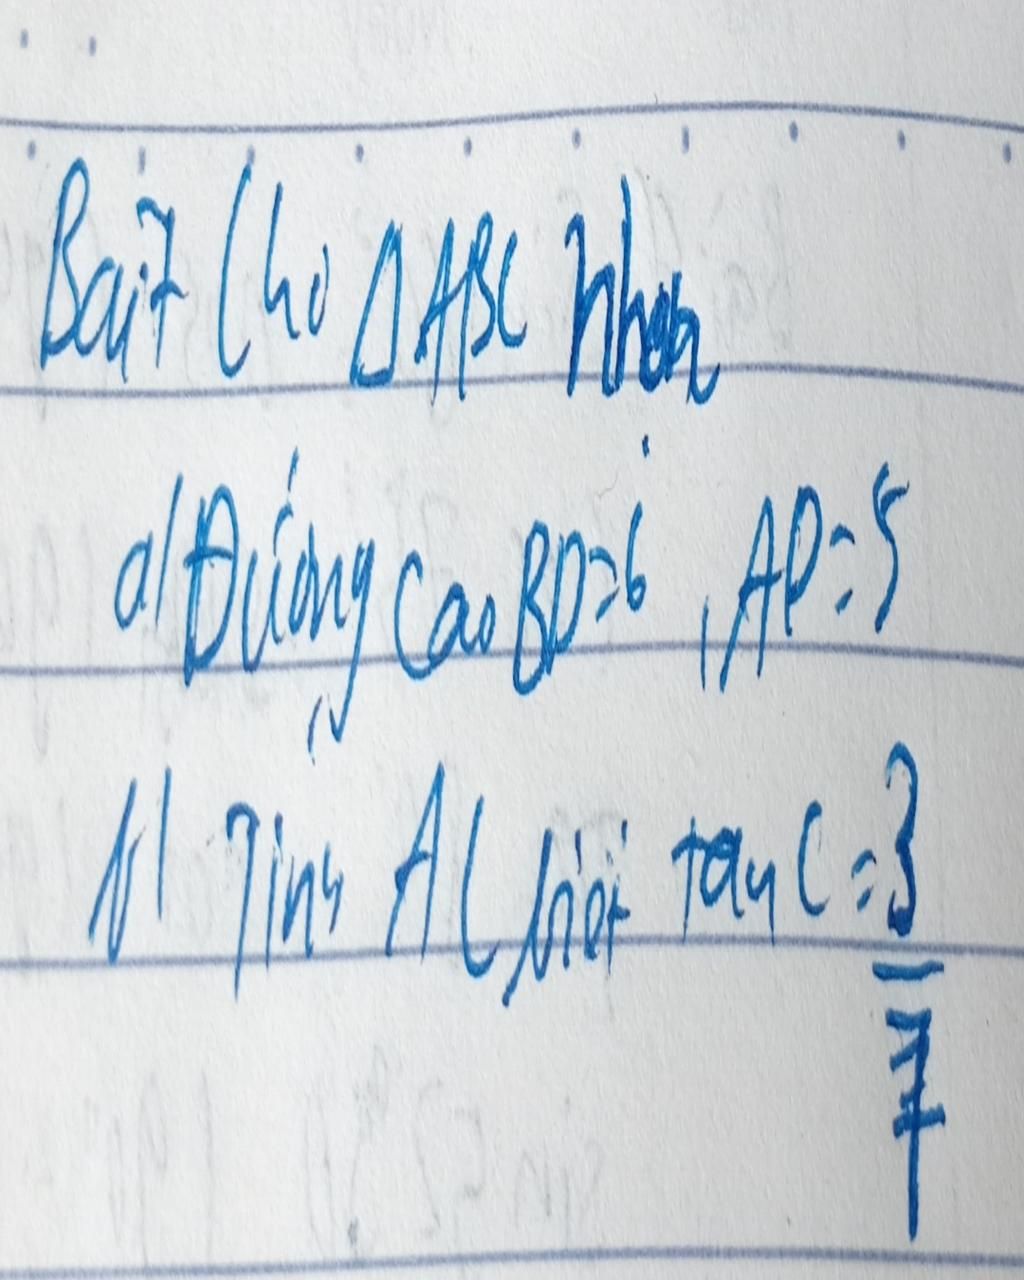 Bài 7 Cho ΔABC nhọn
a/ Đường cao BD=6, AD=5
b/ Tính AC biết tan C = 3/7